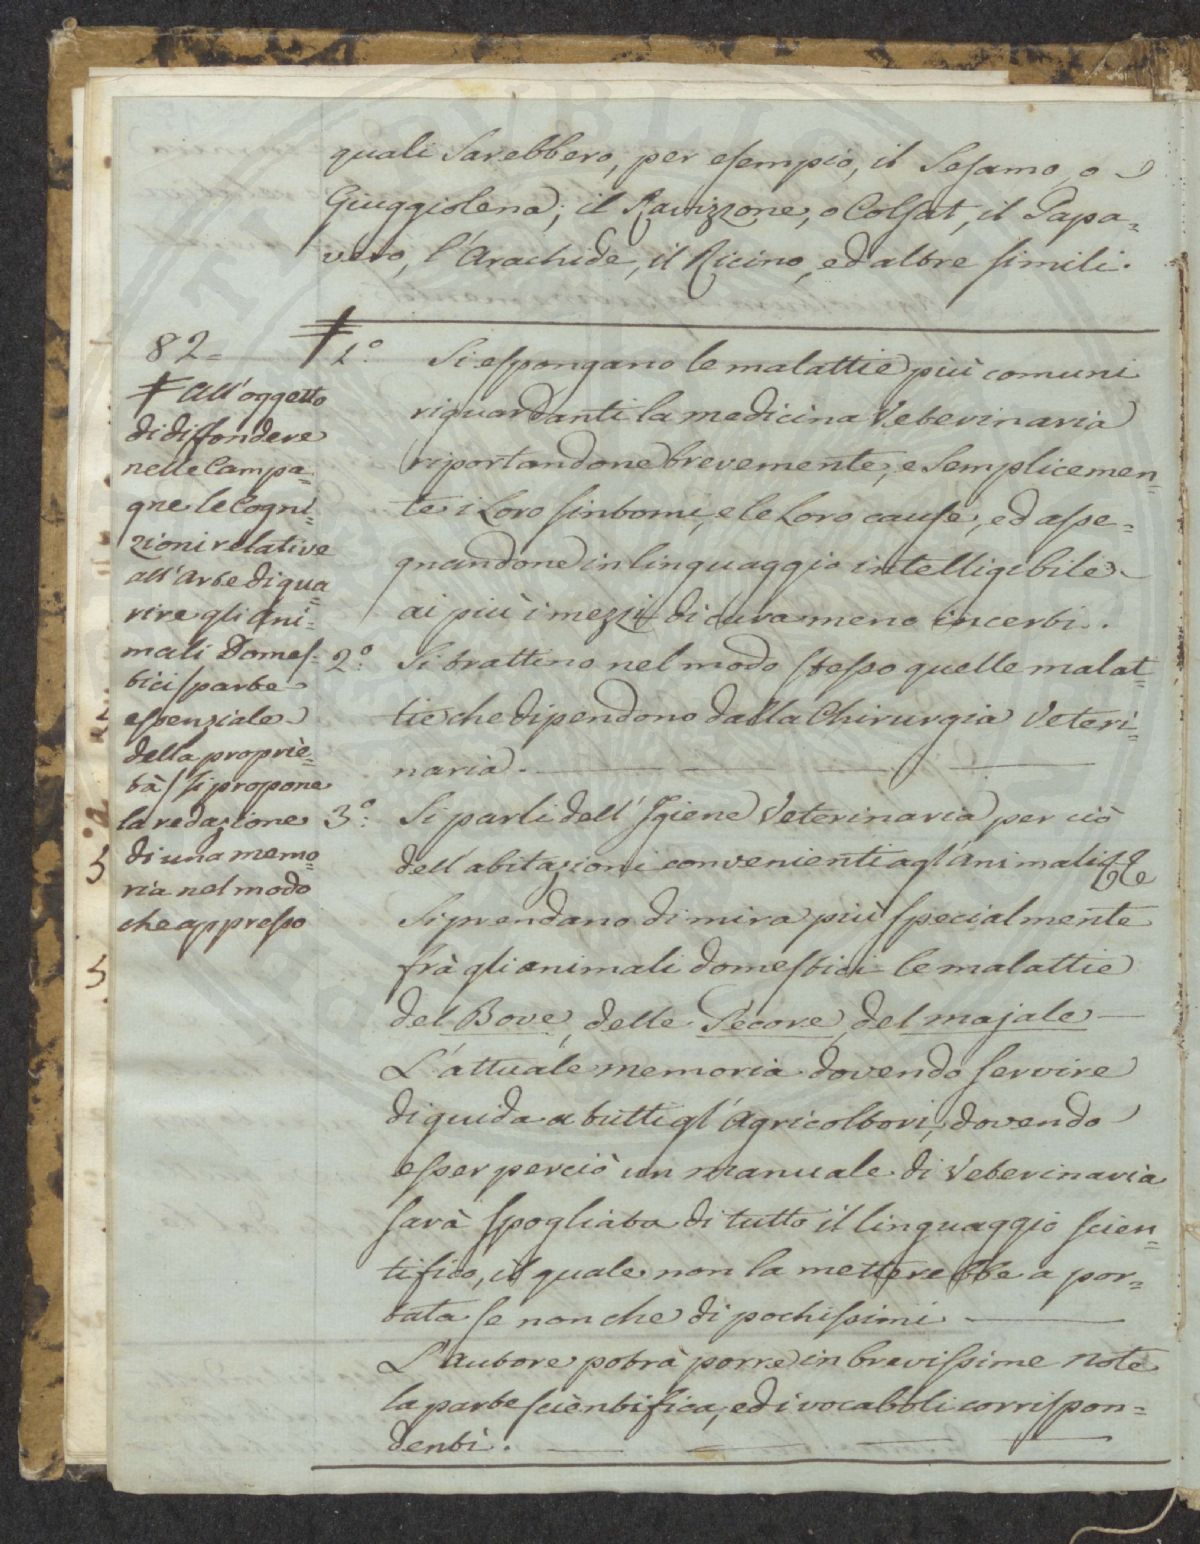 quali Sarebbero, per esempio, il Sesamo, o
Giuggiolena; il Ravizzone, o Colsat, il Papa=
vero, l'Arachide, il Ricino, ed altre simili.
82=
‡ All'oggetto
di diffondere
nelle Campa
gne le Cogni=
zioni relative
all'Arte di gua
rire gli Ani=
mali Domes=
tici / parte
essenziale
della propriè=
tà / si propone
la redazione
di una memo=
ria nel modo
che appresso
‡ 1.° Si espongano le malattie più comuni
riguardanti la medicina Veterinaria
riportandone brevemente, e Semplicemen=
te i Loro sintomi, e le Loro cause, ed asse=
gnandone in linguaggio intelligibile
ai più i mezzi di cura meno incerti.
2.° Si trattino nel modo stesso quelle malat=
tie che dipendono dalla Chirurgia Veteri=
naria.
3.° Si parli dell'Igiene Veterinaria per ciò
dell'abitazioni convenienti agl'animali
Si prendano di mira più specialmente
frà gli animali domestici le malattie
del Bove, delle Pecore, del majale
L'attuale memoria dovendo servire
di guida a tutti gl'Agricoltori, dovendo
esser perciò un manuale di Veterinaria
sarà spogliata di tutto il linguaggio scien=
tifico, il quale non la metterebbe a por=
tata se non che di pochissimi
L'Autore potrà porre in brevissime note
la parte scièntifica, ed i vocaboli corrispon=
denti.